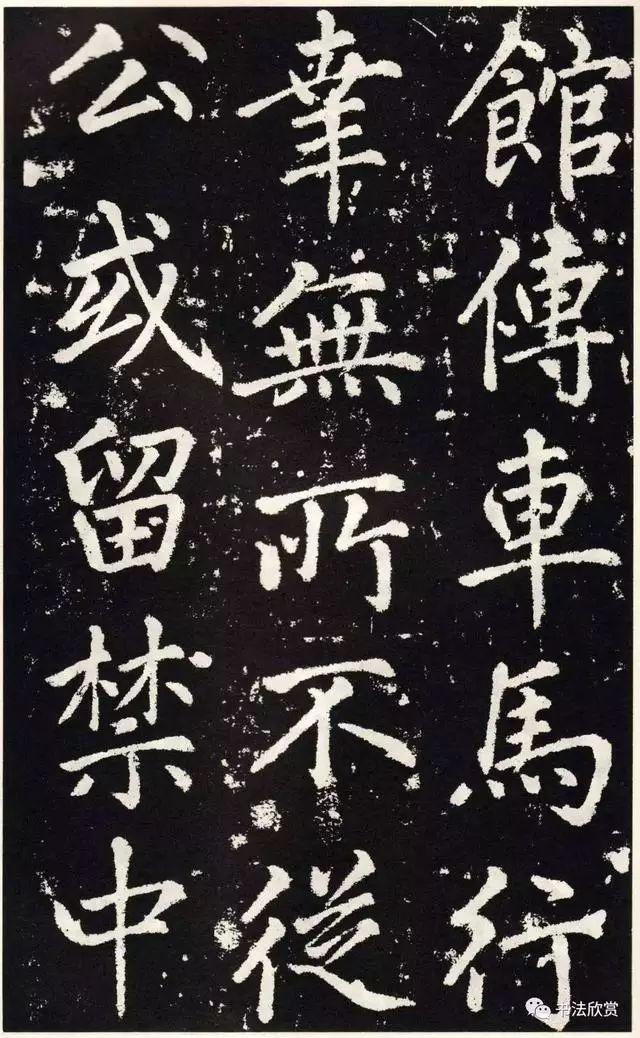 館傳車馬行
幸無所不從
公或留禁中
书法欣赏